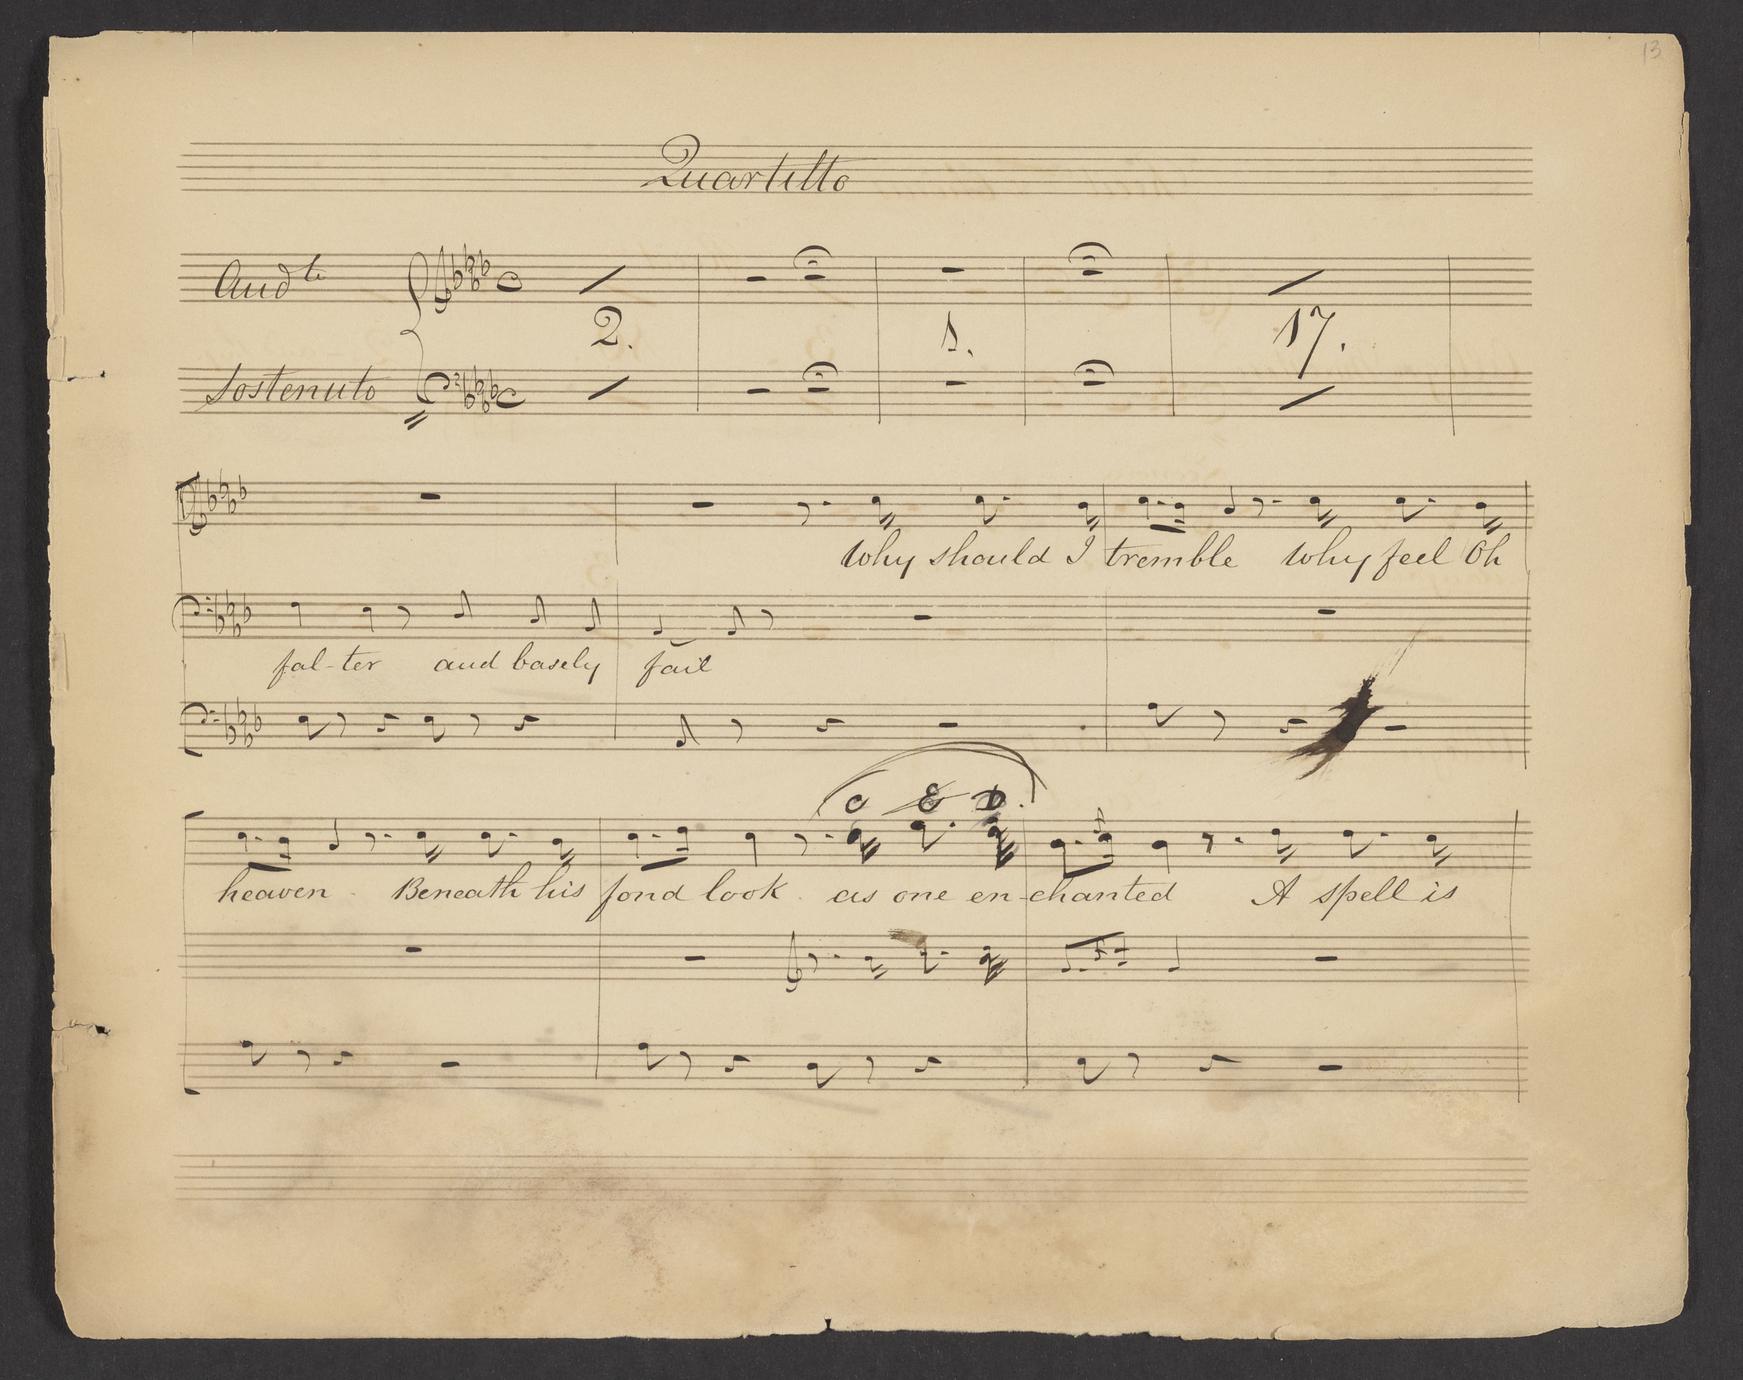 13
Quartetto
And.te
2. 1. 17.
Sostenuto
Why should I tremble Why feel Oh
fal-ter and basely fail
C E D
heaven. Beneath his fond look. as one en-chanted A spell is